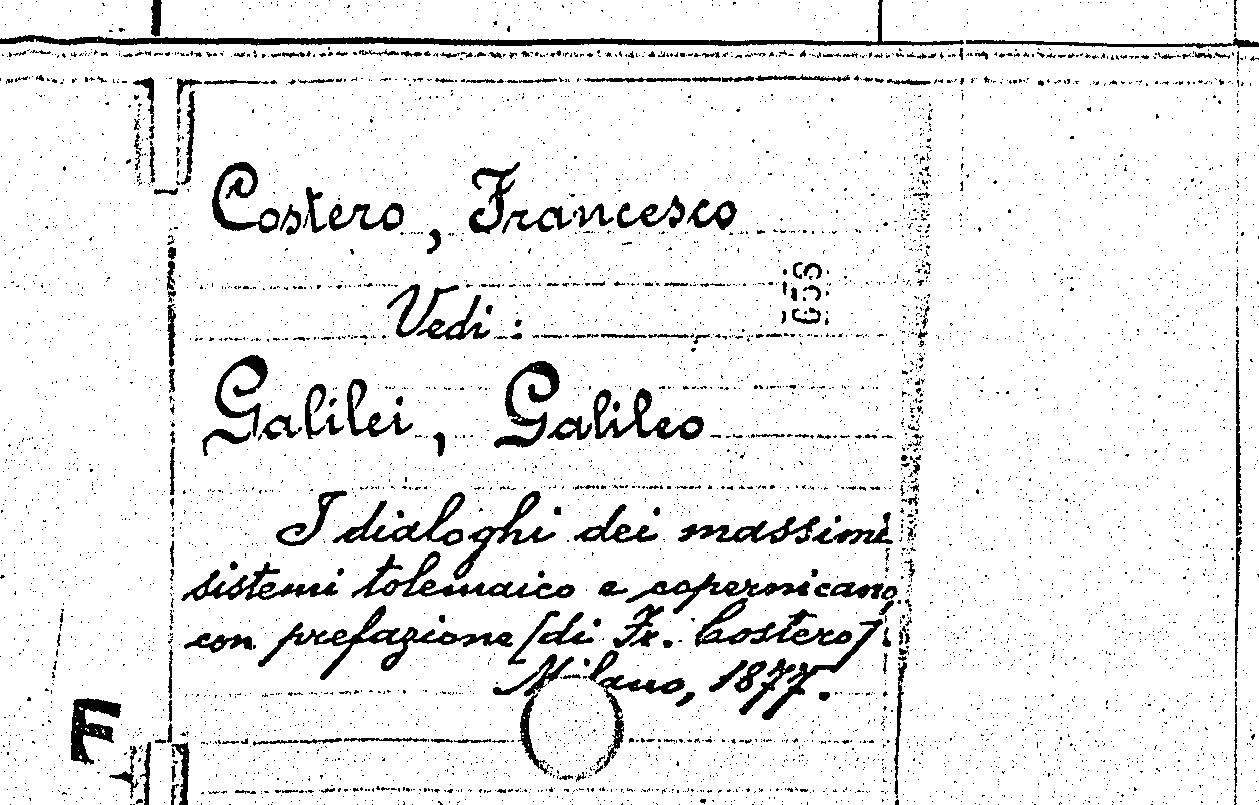 Costero, Francesco
Vedi:
Galilei, Galileo
I dialoghi dei massimi
sistemi tolemaico e copernicano
con prefazione [di Fr. Costero].
Milano, 1877.
F